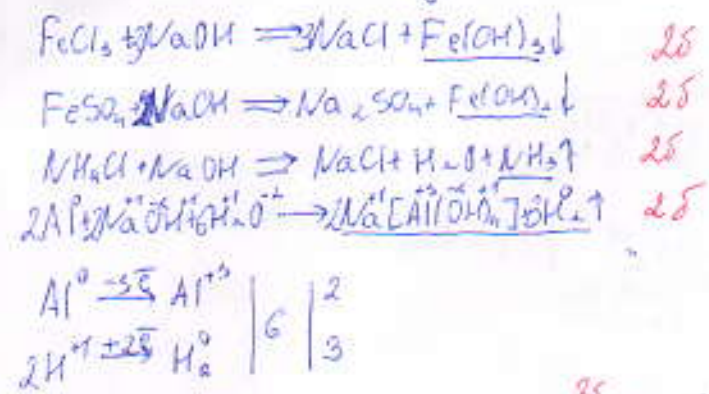 FeCl₃ + 3NaOH ⟹ 3NaCl + Fe(OH)₃↓ 2б
FeSO₄ + 2NaOH ⟹ Na₂SO₄ + Fe(OH)₂↓ 2б
NH₄Cl + NaOH ⟹ NaCl + H₂O + NH₃↑ 2б
2Al⁰ + 2Na⁺¹O⁻²H⁺¹ + 6H₂⁺¹O⁻² → 2Na⁺¹[Al⁺³(O⁻²H⁺¹)₄] + 3H₂⁰↑ 2б
Al⁰ –3ē→ Al⁺³ | 6 | 2
2H⁺¹ +2ē→ H₂⁰ | | 3
2б